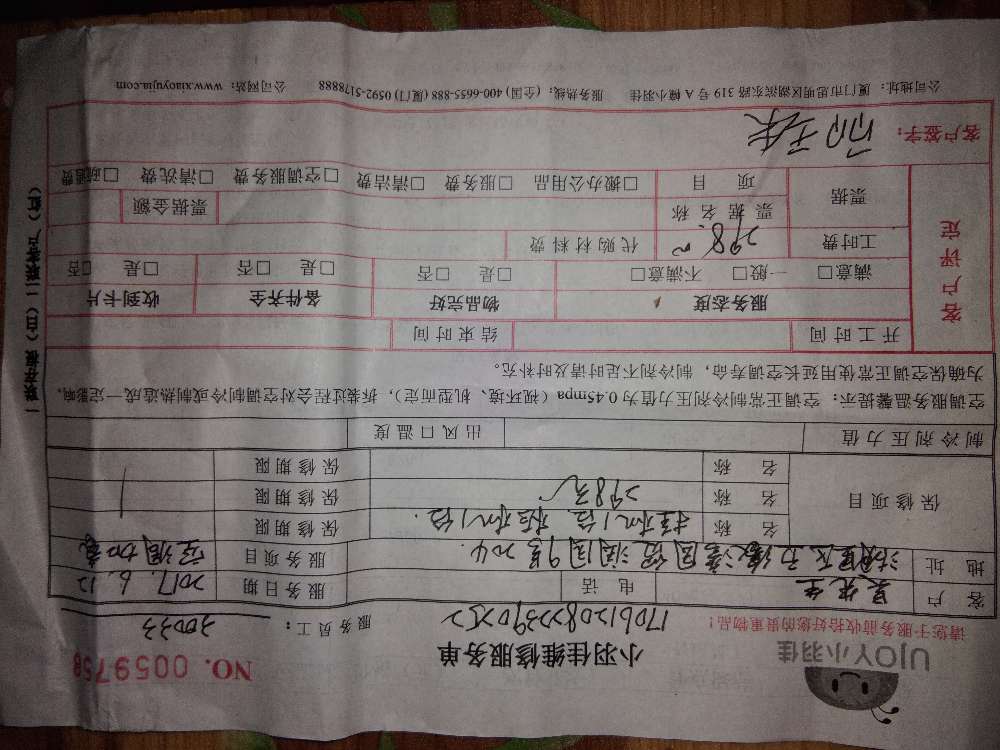 UJOY小羽佳
小羽佳维修服务单
NO. 0059758
请您于服务前收拾好您的贵重物品！
服务员工：30033
客户 吴先生 电话 服务日期 2017.6.12
地址 服务项目 空调加氨
保修项目 名称 挂机1台 柜机1台. 保修期限
名称 298元 保修期限
名称 保修期限
制冷剂压力值 出风口温度
空调服务温馨提示：空调正常制冷剂压力值为0.45mpa（视环境、机型而定），拆装过程会对空调制冷或制热造成一定影响，
为确保空调正常使用延长空调寿命，制冷剂不足时请及时补充。
客户评定
开工时间 结束时间
服务态度 物品完好 备件齐全 收到卡片
满意□ 一般□ 不满意□ □是 □否 □是 □否 □是 □否
工时费 298元 代购材料费
票据 票据名称 票据金额
项目 □搬办公用品 □服务费 □清洁费 □空调服务费 □清洗费
客户签字：
公司地址：厦门市思明区湖滨东路319号A幢小羽佳 服务热线：(全国) 400-6655-888 (厦门) 0592-5178888 公司网站：www.xiaoyujia.com
一联存根（白）二联客户（红）